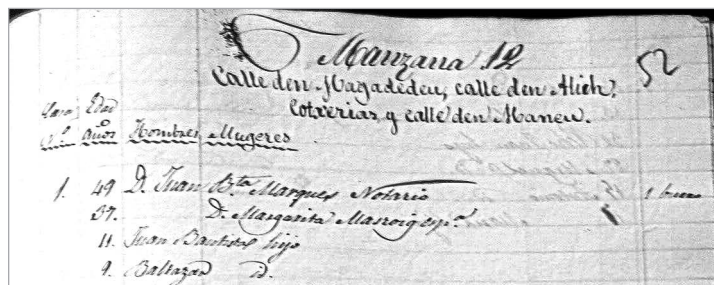 Manzana 12
52
Calle den Magadeden, calle den Alich,
Cotxerias, y calle den Maneu.
Casas Edad
años Hombres, Mugeres
1. 49 D. Juan Bta Marques Notario 1 bueno
37. D. Margarita Masroig espa.
11. Juan Bautista hijo
9. Baltazar id.